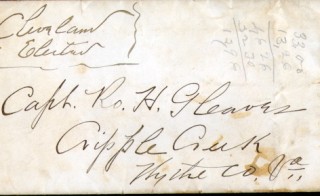 Cleveland
Elected
Capt. Ro. H. Gleaves
Cripple Creek
Wythe Co. Va